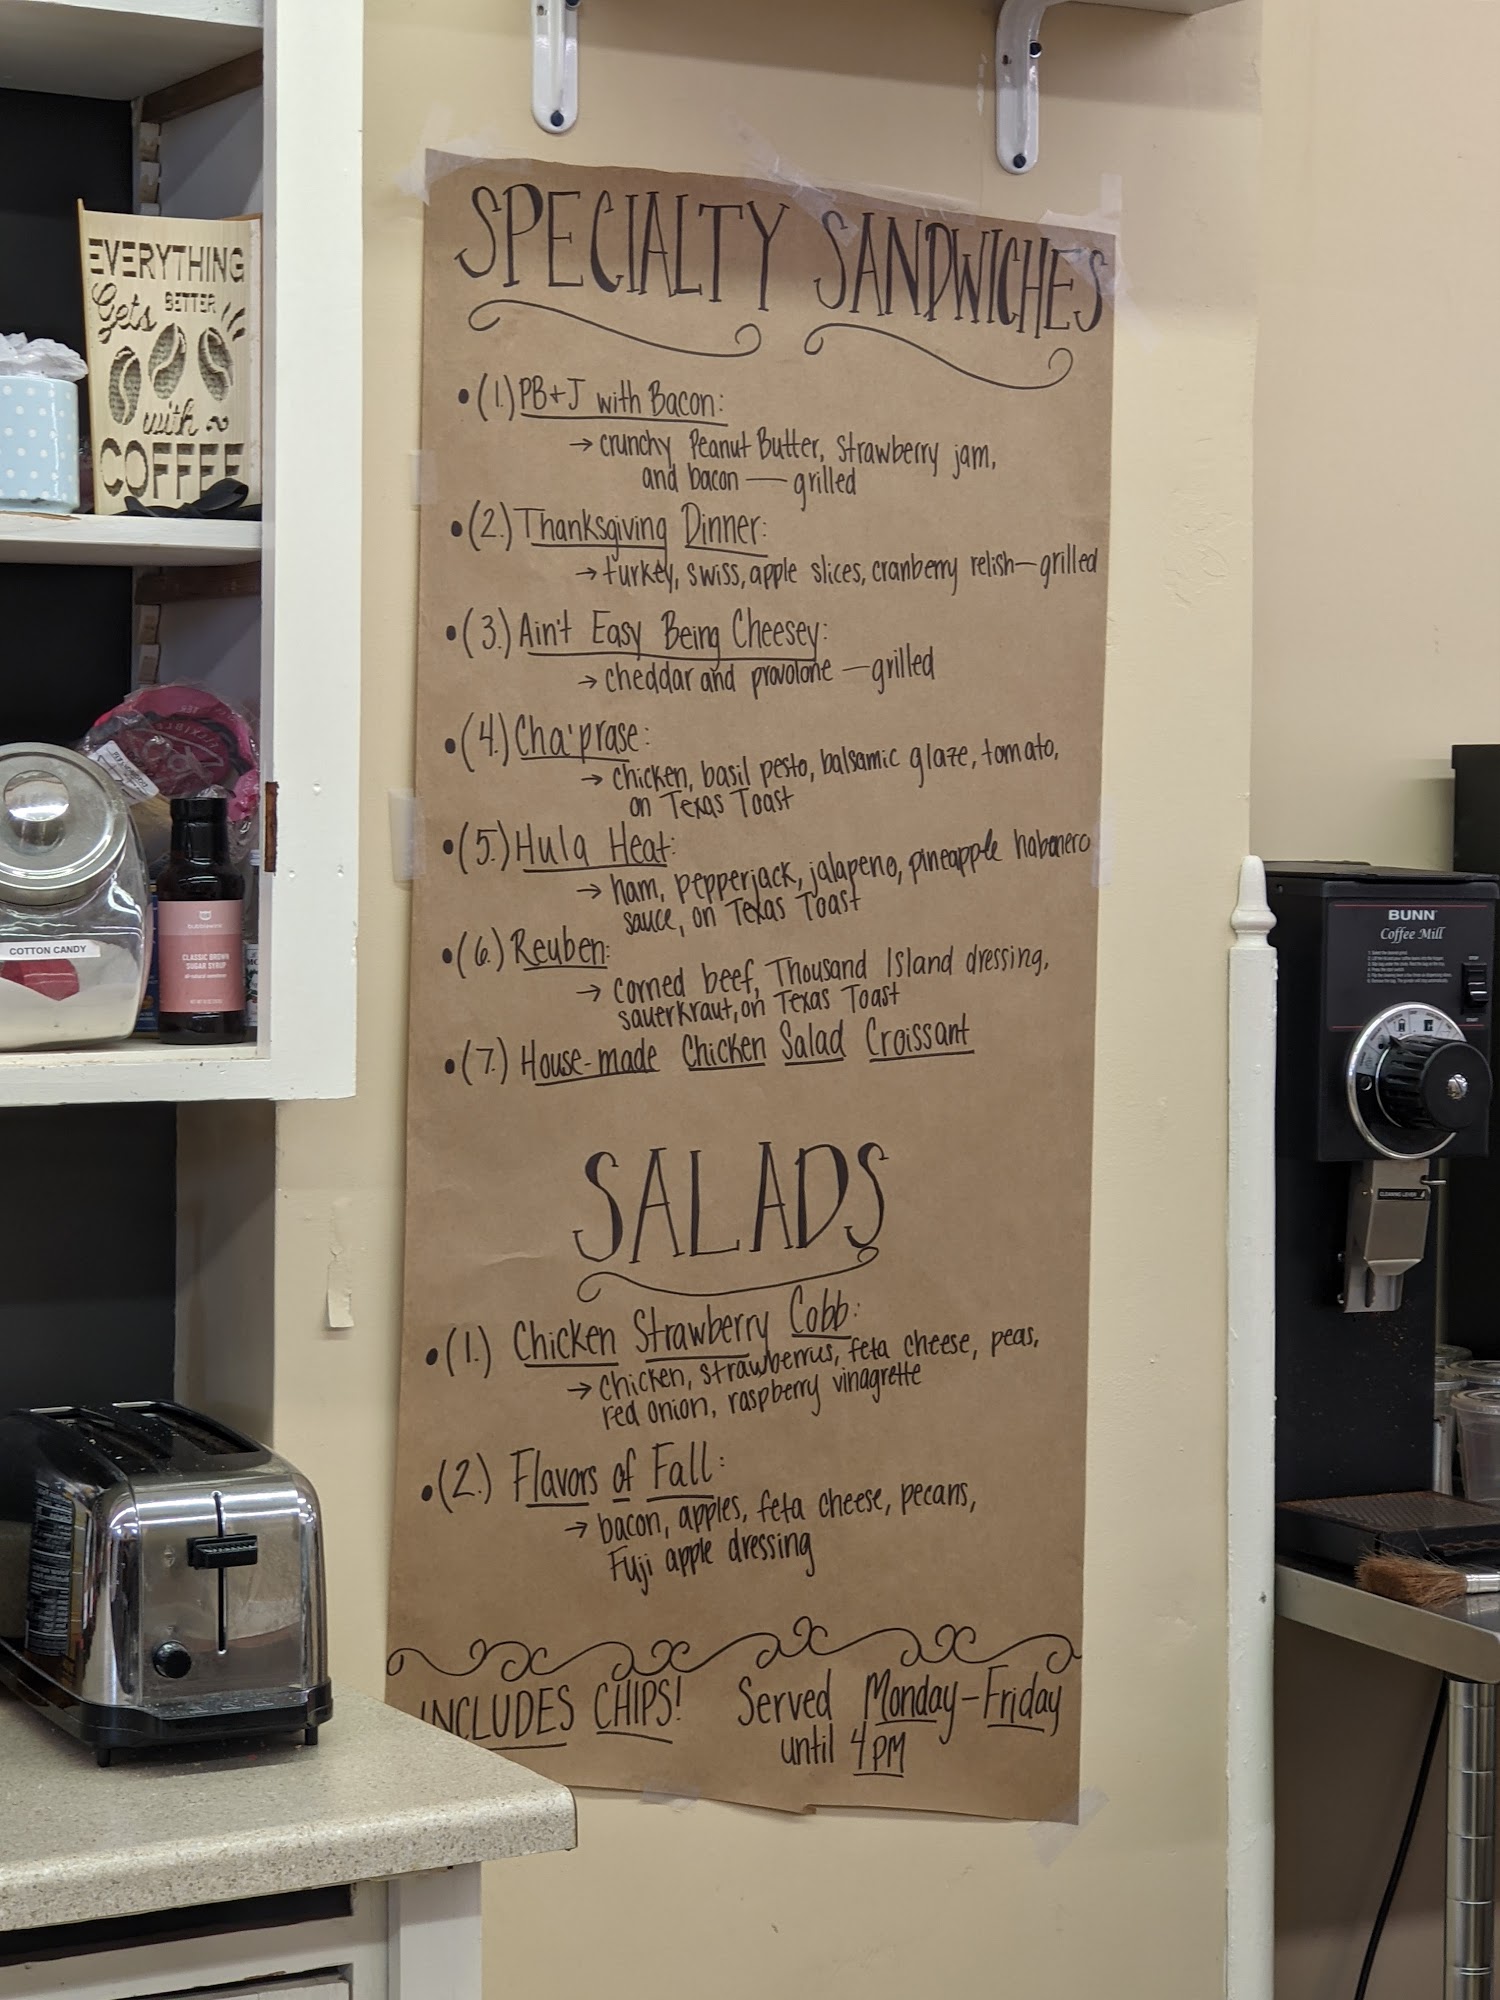 SPECIALTY SANDWICHES
• (1.) PB+J with Bacon:
→ crunchy Peanut Butter, Strawberry jam,
and bacon — grilled
• (2.) Thanksgiving Dinner:
→ turkey, swiss, apple slices, cranberry relish — grilled
• (3.) Ain't Easy Being Cheesey:
→ cheddar and provolone — grilled
• (4.) Cha'prase:
→ chicken, basil pesto, balsamic glaze, tomato,
on Texas Toast
• (5.) Hula Heat:
→ ham, pepperjack, jalapeno, pineapple habanero
sauce, on Texas Toast
• (6.) Reuben:
→ corned beef, Thousand Island dressing,
sauerkraut, on Texas Toast
• (7.) House-made Chicken Salad Croissant
SALADS
• (1.) Chicken Strawberry Cobb:
→ chicken, strawberrus, feta cheese, peas,
red onion, raspberry vinagrette
• (2.) Flavors of Fall:
→ bacon, apples, feta cheese, pecans,
Fuji apple dressing
INCLUDES CHIPS!
Served Monday-Friday
until 4pm
EVERYTHING
Gets BETTER
with
COFFEE
COTTON CANDY
CLASSIC BROWN
SUGAR SYRUP
BUNN
Coffee Mill
STOP
START
CLEANING LEVER